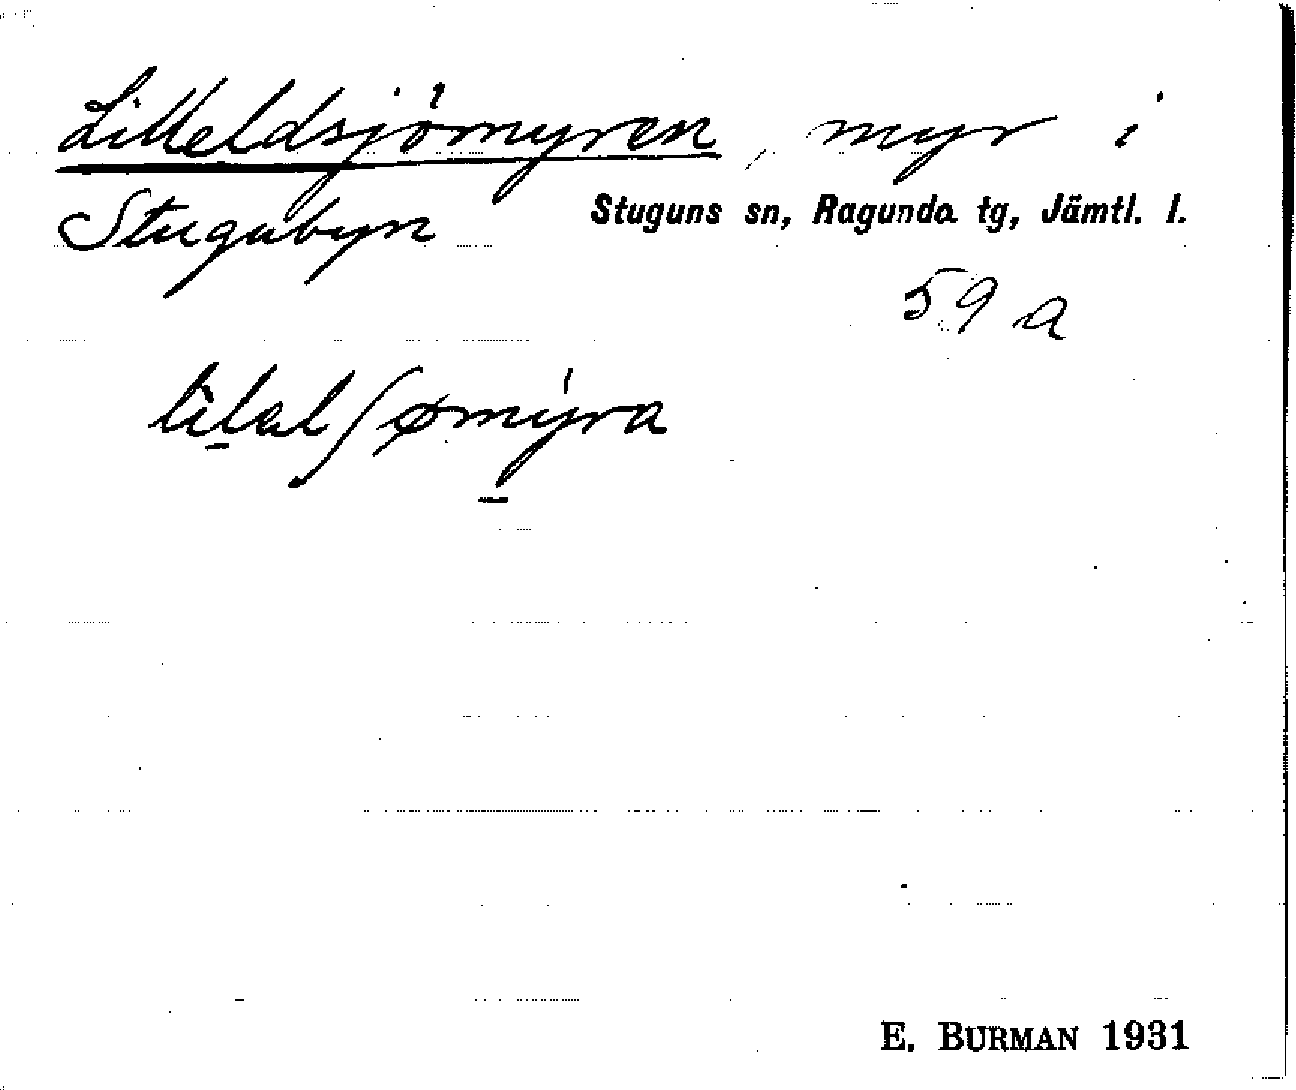 Lilleldsjömyren, myr i
Stugubyn Stuguns sn, Ragunda tg, Jämtl. l.
59 a
E. BURMAN 1931